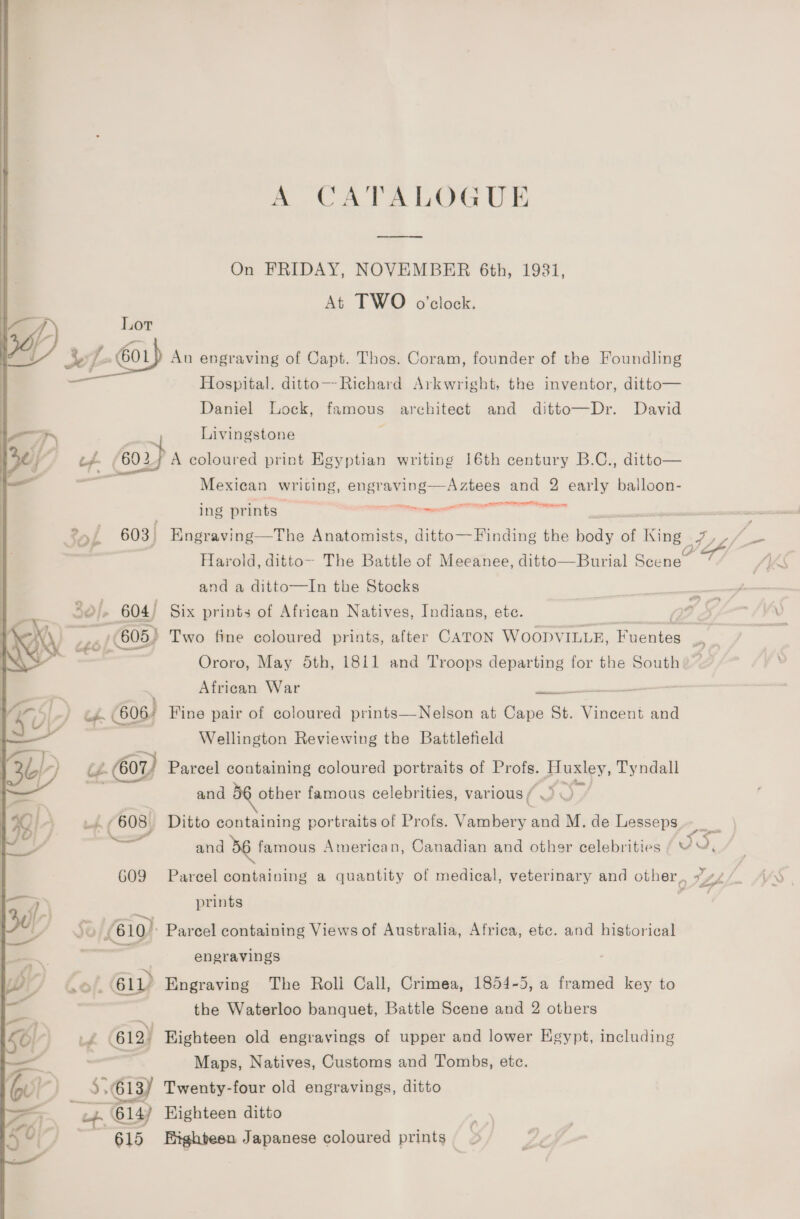 A CATALOGUE
On FRIDAY, NOVEMBER 6th, 1931,
At TWO o'clock.
Lot
601 An engraving of Capt. Thos. Coram, founder of the Foundling
Hospital. ditto—Richard Arkwright, the inventor, ditto—
Daniel Lock, famous architect and ditto—Dr. David
Livingstone
602 A coloured print Egyptian writing 16th century B.C., ditto—
Mexican writing, engraving—Aztees and 2 early balloon-
ing prints
603 Engraving—The Anatomists, ditto—Finding the body of King
Harold, ditto— The Battle of Meeanee, ditto—Burial Scene
and a ditto—In the Stocks
30/- 604 Six prints of African Natives, Indians, etc.
605 Two fine coloured prints, after CATON WOODVILLE, Fuentes
Ororo, May 5th, 1811 and Troops departing for the South
African War
606 Fine pair of coloured prints—Nelson at Cape St. Vincent and
Wellington Reviewing the Battlefield
607 Parcel containing coloured portraits of Profs. Huxley, Tyndall
and 56 other famous celebrities, various
608 Ditto containing portraits of Profs. Vambery and M. de Lesseps
and 56 famous American, Canadian and other celebrities
609 Parcel containing a quantity of medical, veterinary and other
prints
30/- 610 Parcel containing Views of Australia, Africa, etc. and historical
engravings
611 Engraving The Roll Call, Crimea, 1854-5, a framed key to
the Waterloo banquet, Battle Scene and 2 others
612 Eighteen old engravings of upper and lower Egypt, including
Maps, Natives, Customs and Tombs, etc.
613 Twenty-four old engravings, ditto
614 Eighteen ditto
615 Eighteen Japanese coloured prints